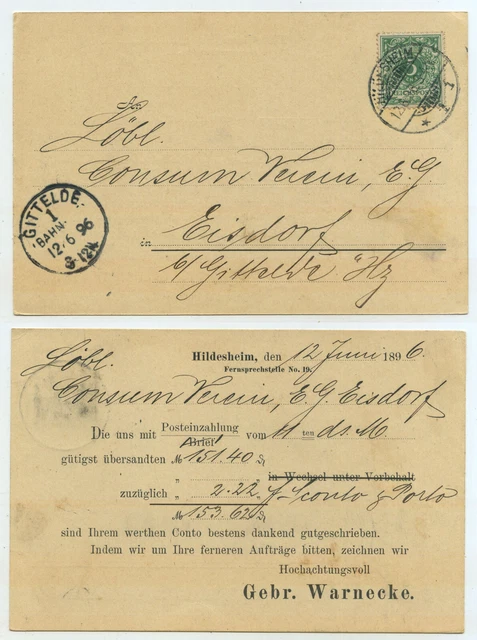 HILDESHEIM
An
Löbl.
Consum Verein, E.G.
in Eisdorf
b/ Gittelde a/Hz
GITTELDE.
1
BAHN-
12.6 96
8-12V.
Löbl. Hildesheim, den 12 Juni 1896.
Fernsprechstelle No. 19.
Consum Verein, E.G. Eisdorf
Die uns mit Posteinzahlung
Brief vom 11ten ds. M.
gütigst übersandten ℳ 151.40 ₰
in Wechsel unter Vorbehalt
zuzüglich „ 2.22 „ f. Sconto & Porto
ℳ 153.62 ₰
sind Ihrem werthen Conto bestens dankend gutgeschrieben.
Indem wir um Ihre ferneren Aufträge bitten, zeichnen wir
Hochachtungsvoll
Gebr. Warnecke.